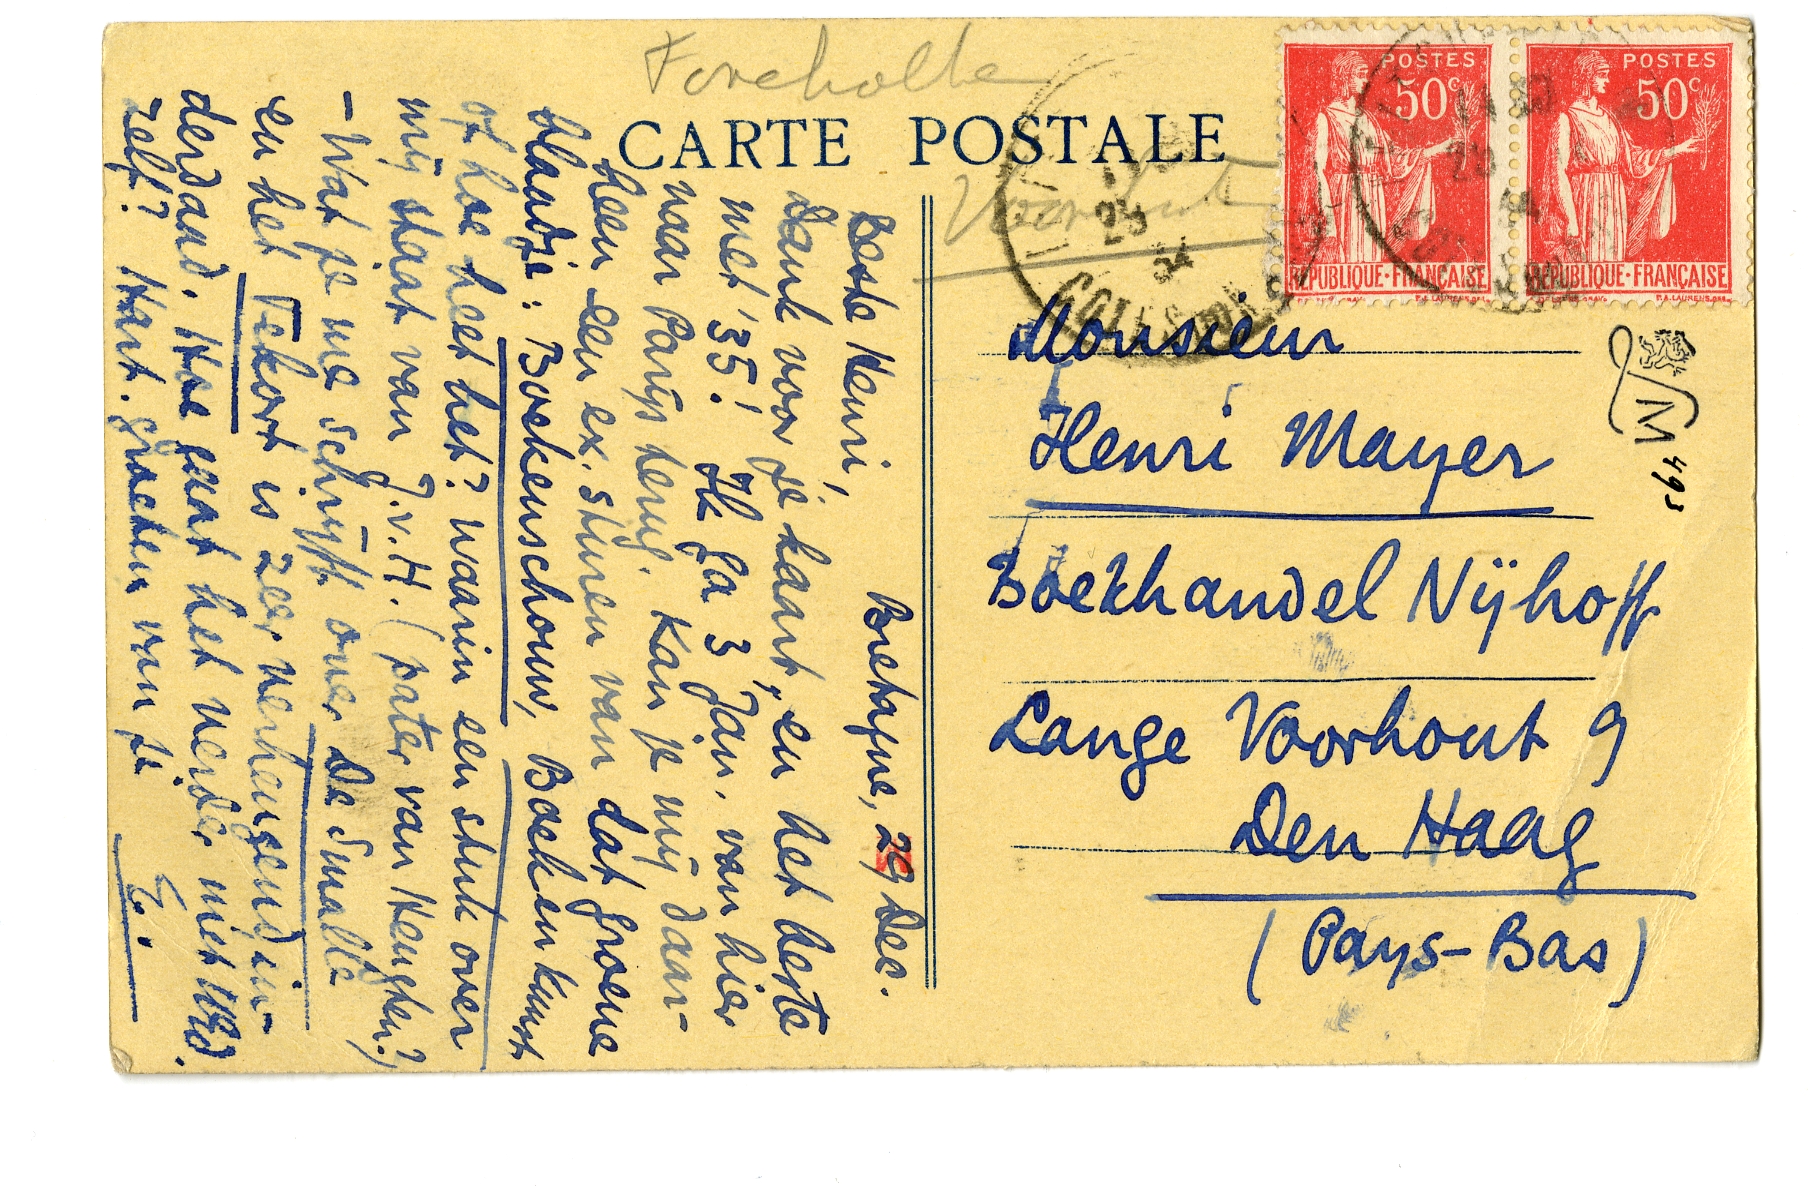 Foreholte
CARTE POSTALE
Voorhout
POSTES
50c
RÉPUBLIQUE·FRANÇAISE
POSTES
50c
RÉPUBLIQUE·FRANÇAISE
34
COTES DU
Bretagne, 29 Dec.
Beste Henri,
Dank voor je kaart, en het beste
met '35! Ik ga 3 Jan. van hier
naar Parijs terug. Kan je mij daar-
heen een ex. sturen van dat groene
blaadje: Boekenschouw, Boekenkunst
of hoe heet het? waarin een stuk over
mij staat van J.v.H. (pater van Heugten?)
– Wat je me schrijft over De Smalle
en het Tekort is zeer verheugend in-
derdaad. Hoe gaat het verder met
zelf? Hart. groeten van je
E.
Monsieur
Henri Mayer
Boekhandel Nijhoff
Lange Voorhout 9
Den Haag
(Pays-Bas)
M